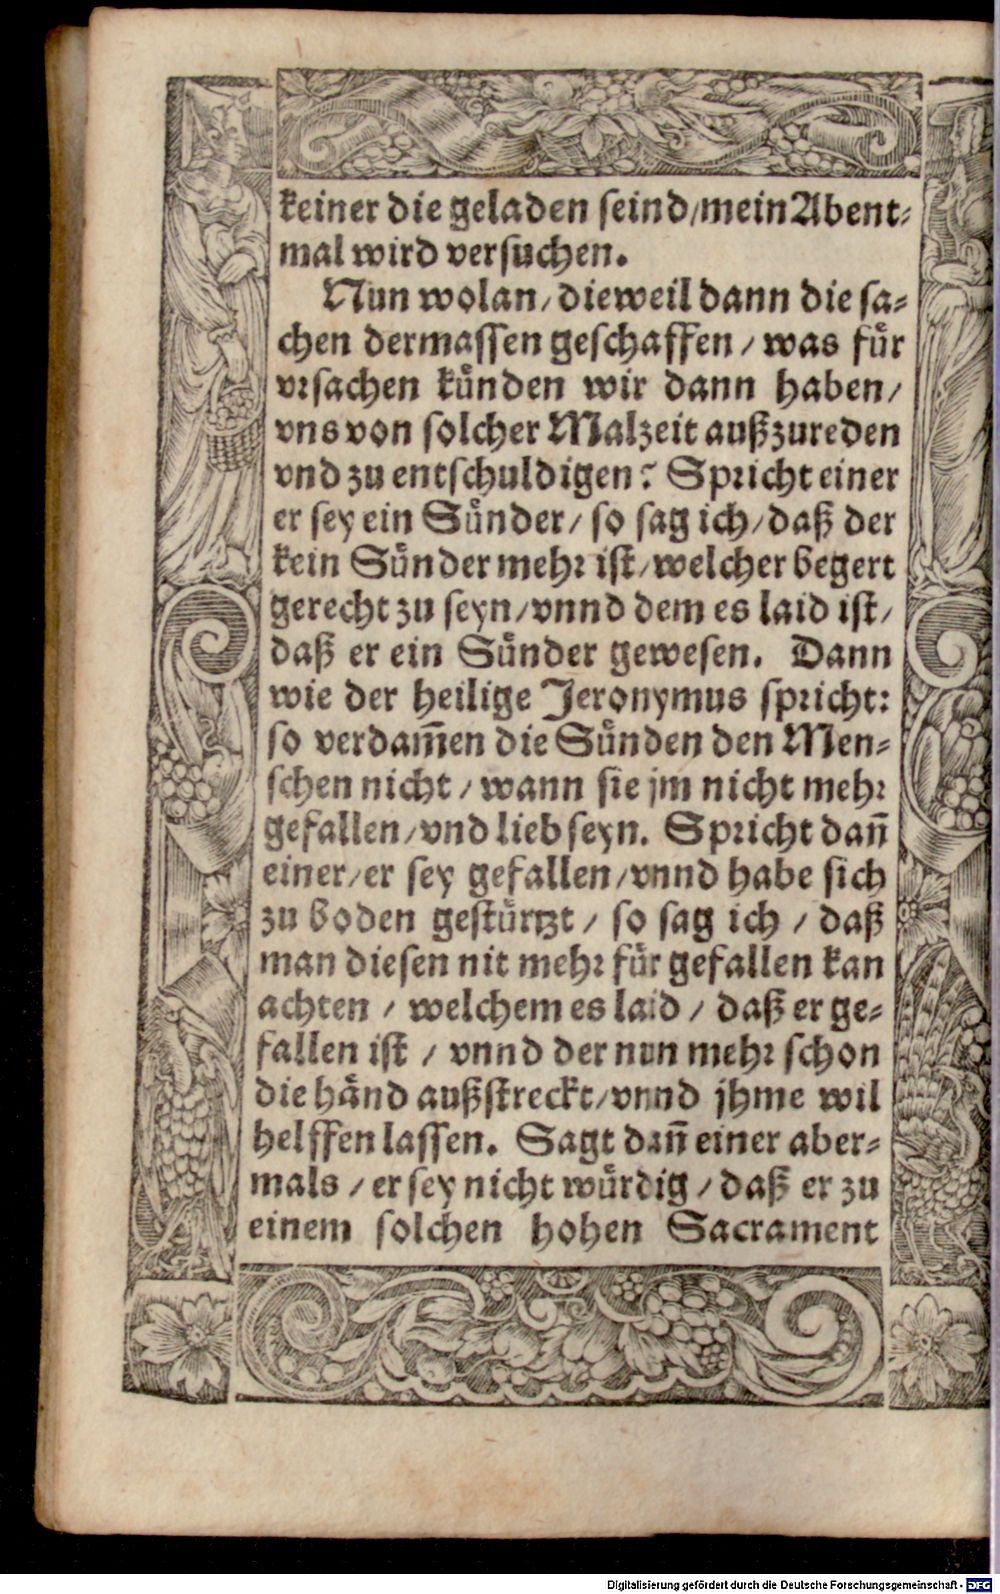 keiner die geladen seind/mein Abent⸗
mal wird versuchen.
Nun wolan/dieweil dann die sa⸗
chen dermassen geschaffen/was fuͤr
vrsachen kuͤnden wir dann haben/
vns von solcher Malzeit außzureden
vnd zu entschuldigen? Spricht einer
er sey ein Suͤnder/so sag ich/daß der
kein Suͤnder mehr ist/welcher begert
gerecht zu seyn/vnnd dem es laid ist/
daß er ein Suͤnder gewesen. Dann
wie der heilige Jeronymus spricht:
so verdam̃en die Suͤnden den Men⸗
schen nicht/wann sie jm nicht mehr
gefallen/vnd lieb seyn. Spricht dañ
einer/er sey gefallen/vnnd habe sich
zu boden gestuͤrtzt/so sag ich/daß
man diesen nit mehr fuͤr gefallen kan
achten/welchem es laid/daß er ge⸗
fallen ist/vnnd der nun mehr schon
die haͤnd außstreckt/vnnd jhme wil
helffen lassen. Sagt dañ einer aber⸗
mals/er sey nicht wuͤrdig/daß er zu
einem solchen hohen Sacrament
Digitalisierung gefördert durch die Deutsche Forschungsgemeinschaft - DFG